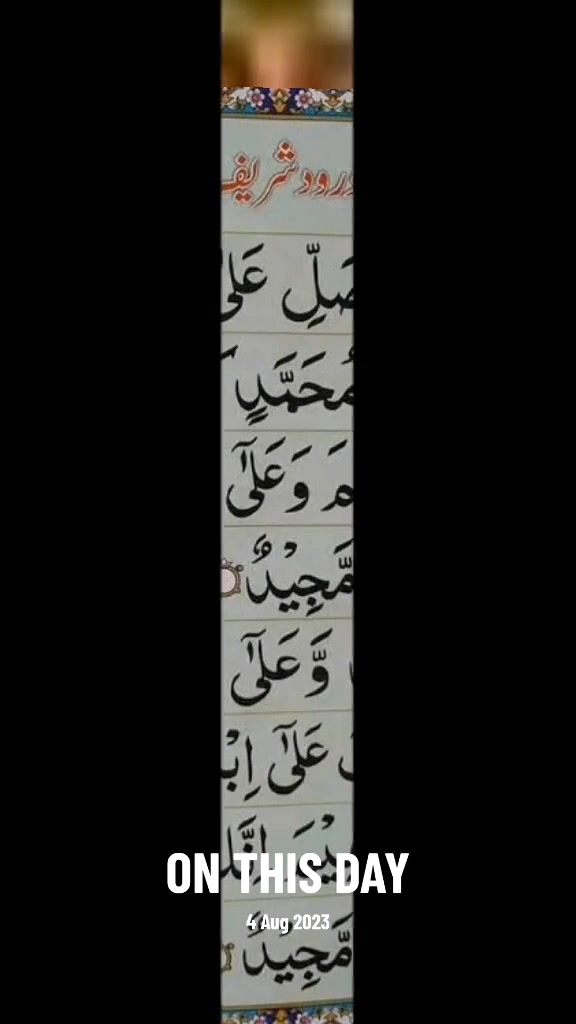 درود شریف
صَلِّ عَلٰى
مُحَمَّدٍ
مَ وَعَلٰٓى
مَّجِيْدٌ
وَّعَلٰٓى
عَلٰٓى اِبْ
ON THIS DAY
4 Aug 2023
مَّجِيْدٌ